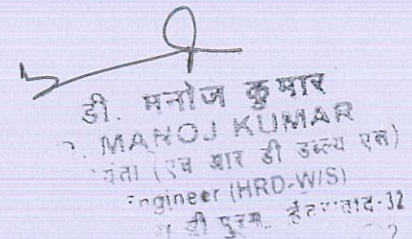 डी. मनोज कुमार
. MANOJ KUMAR
(एच आर डी डब्ल्य एस)
ngineer (HRD-W/S)
डी पुरम. -32